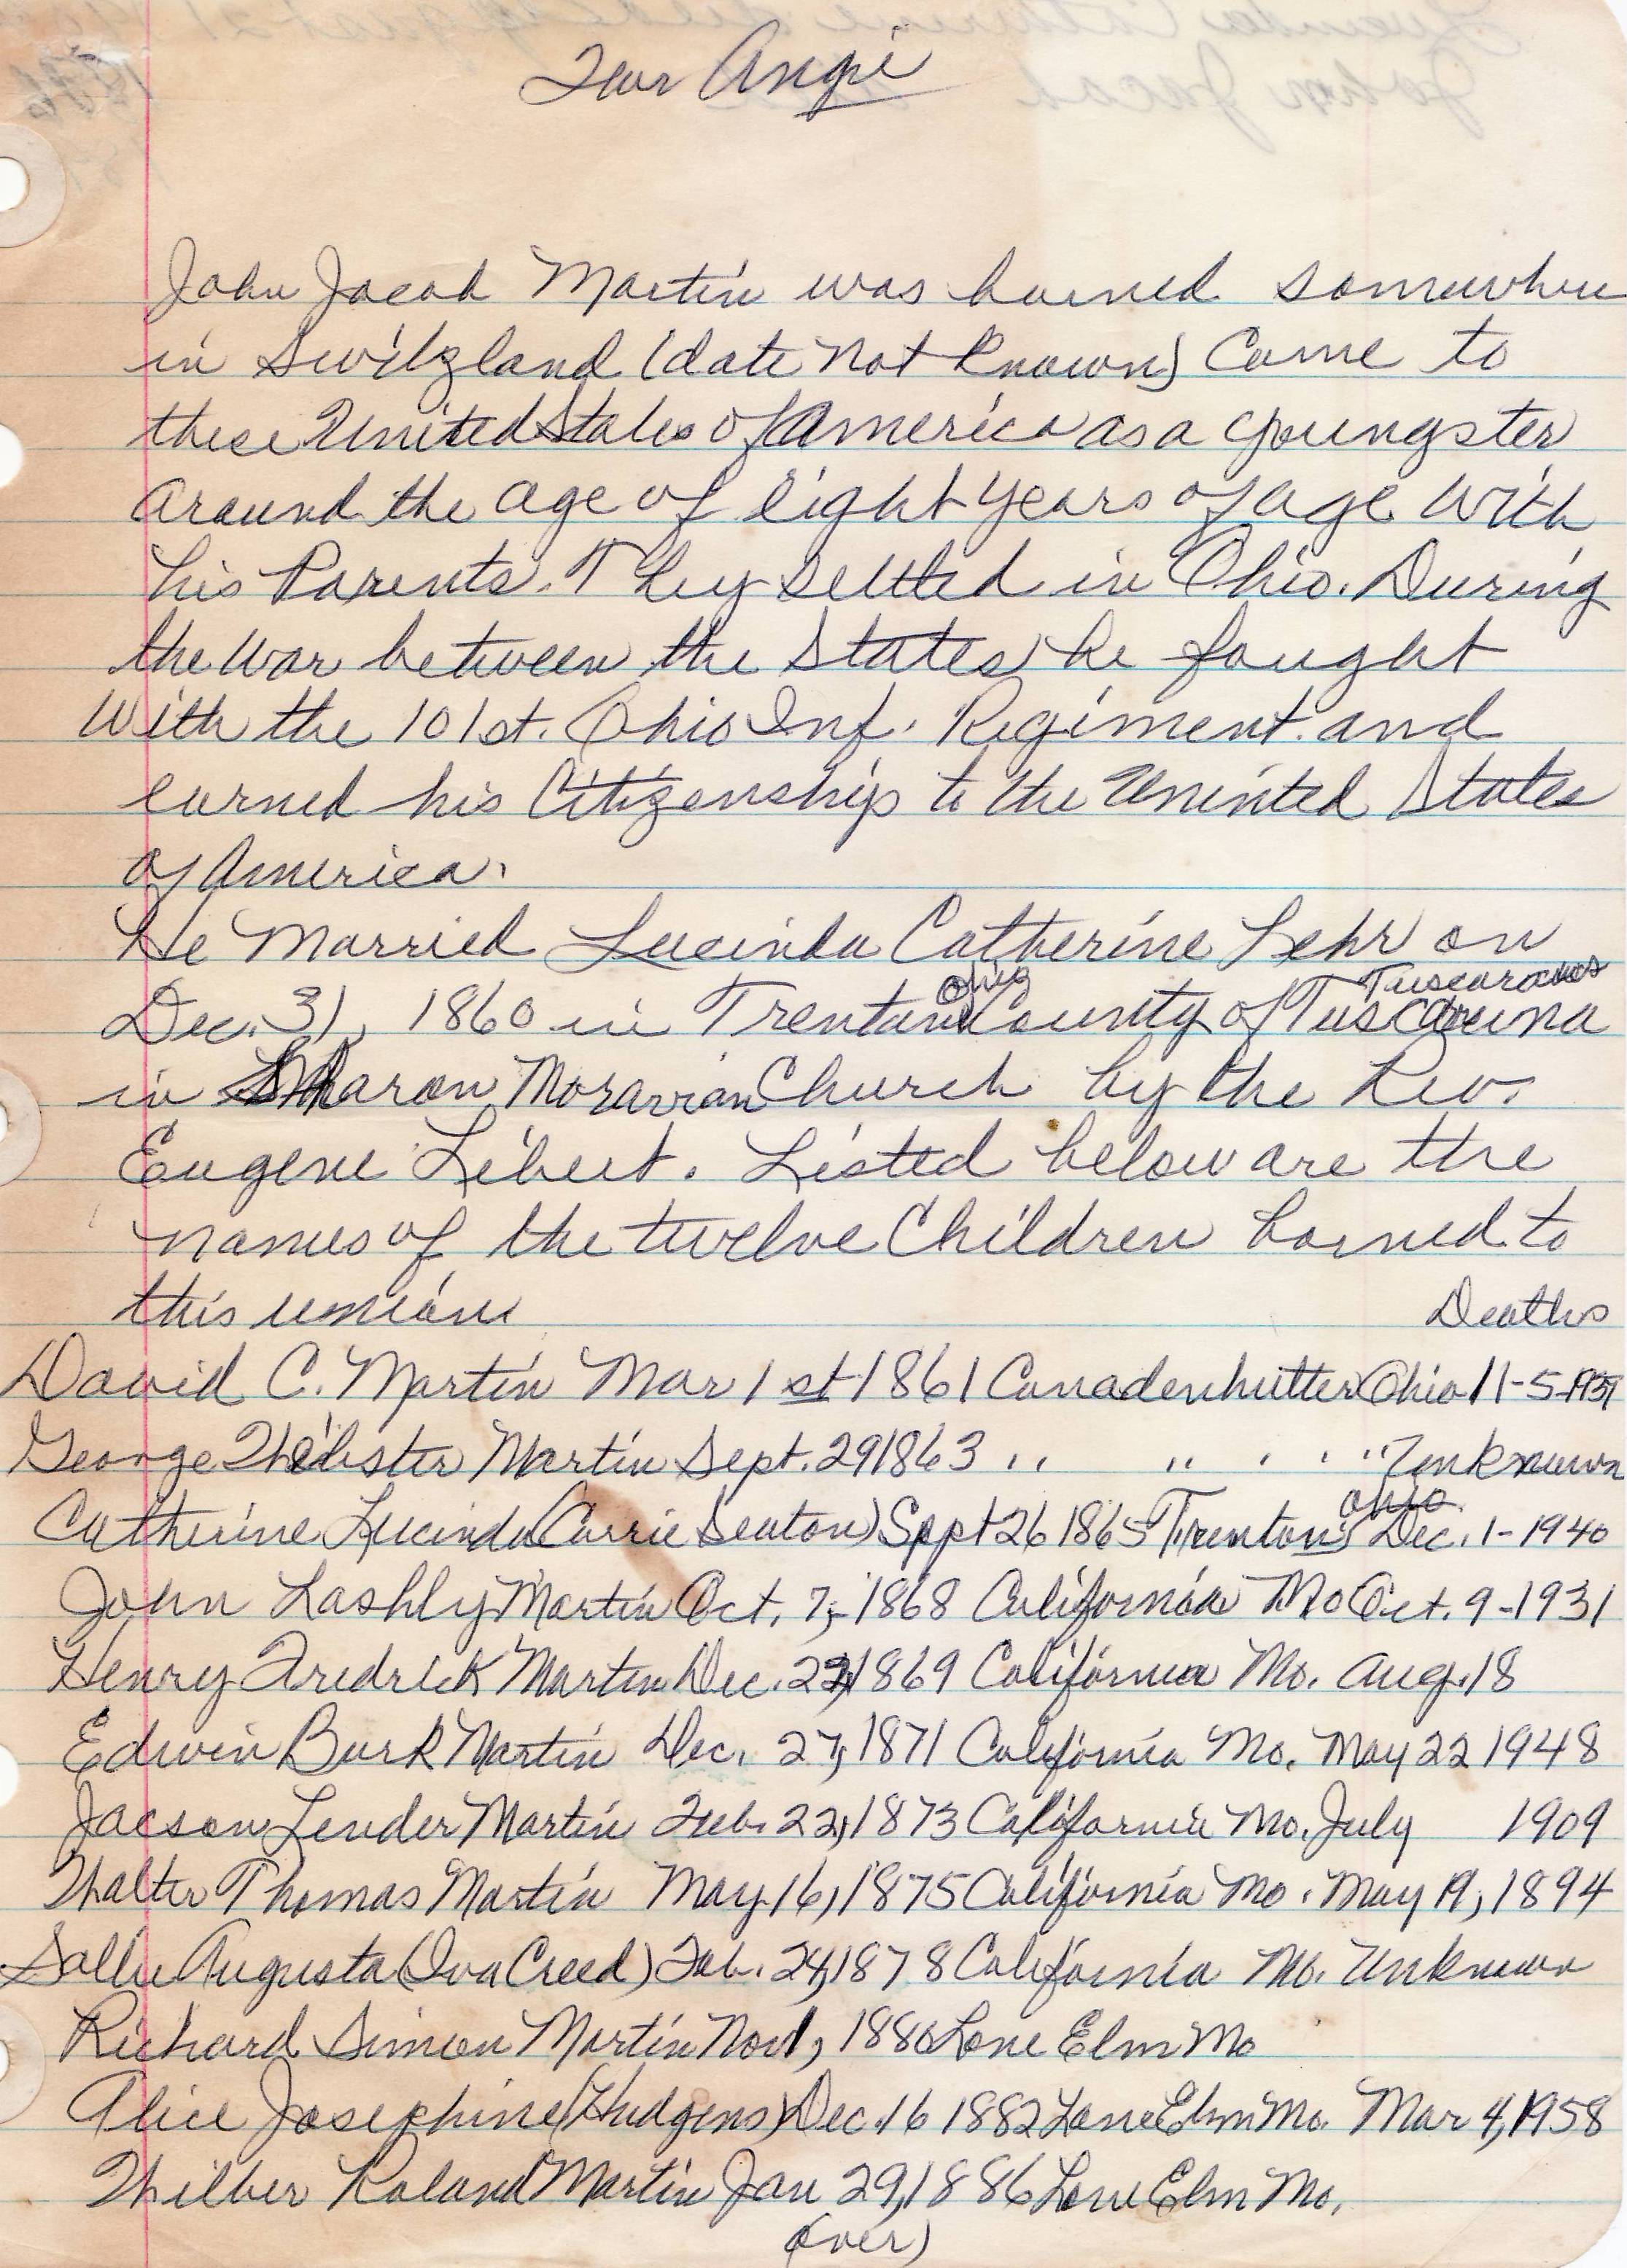 For Angie
John Jacob Martin was borned somewhere
in Switzland (date not known) Came to
these United States of America as a youngster
around the age of eight years of age with
his Parents. They settled in Ohio. During
the War between the States he fought
with the 101st. Ohio Inf. Regiment and
earned his Citizenship to the Uninted States
of America.
He Married Lucinda Catherine Lehr on
Ohio Tuscarawas
Dec. 31, 1860 in Trenton County of
in Sharon Moravian Church by the Rev.
Eugene Libert. Listed below are the
names of the twelve Children borned to
this union Deaths
David C. Martin Mar 1st 1861 Ohio 11-5-
George Webster Martin Sept. 29 1863 " " " " " Unknown
Ohio
Catherine Lucinda (Carrie Seaton) Sept 26 1865 Trenton Dec. 1-1940
John Lashly Martin Oct. 7, 1868 California Mo Oct. 9-1931
Henry Fredrick Martin Dec. 1869 California Mo. Aug. 18
Edwin Burk Martin Dec. 27, 1871 California Mo. May 22 1948
Jacson Lender Martin Feb. 22, 1873 California Mo. July 1909
Walter Thomas Martin May 16, 1875 California Mo. May 19, 1894
Sallie Augusta (Iva Creed) Feb. 24, 1878 California Mo. Unknown
Richard Simon Martin Nov 1, 1880 Lone Elm Mo
Alice Josephine (Hudgens) Dec. 16 1882 Lone Elm Mo. Mar 4, 1958
Wilber Roland Martin Jan 29, 1886 Lone Elm Mo.
(over)